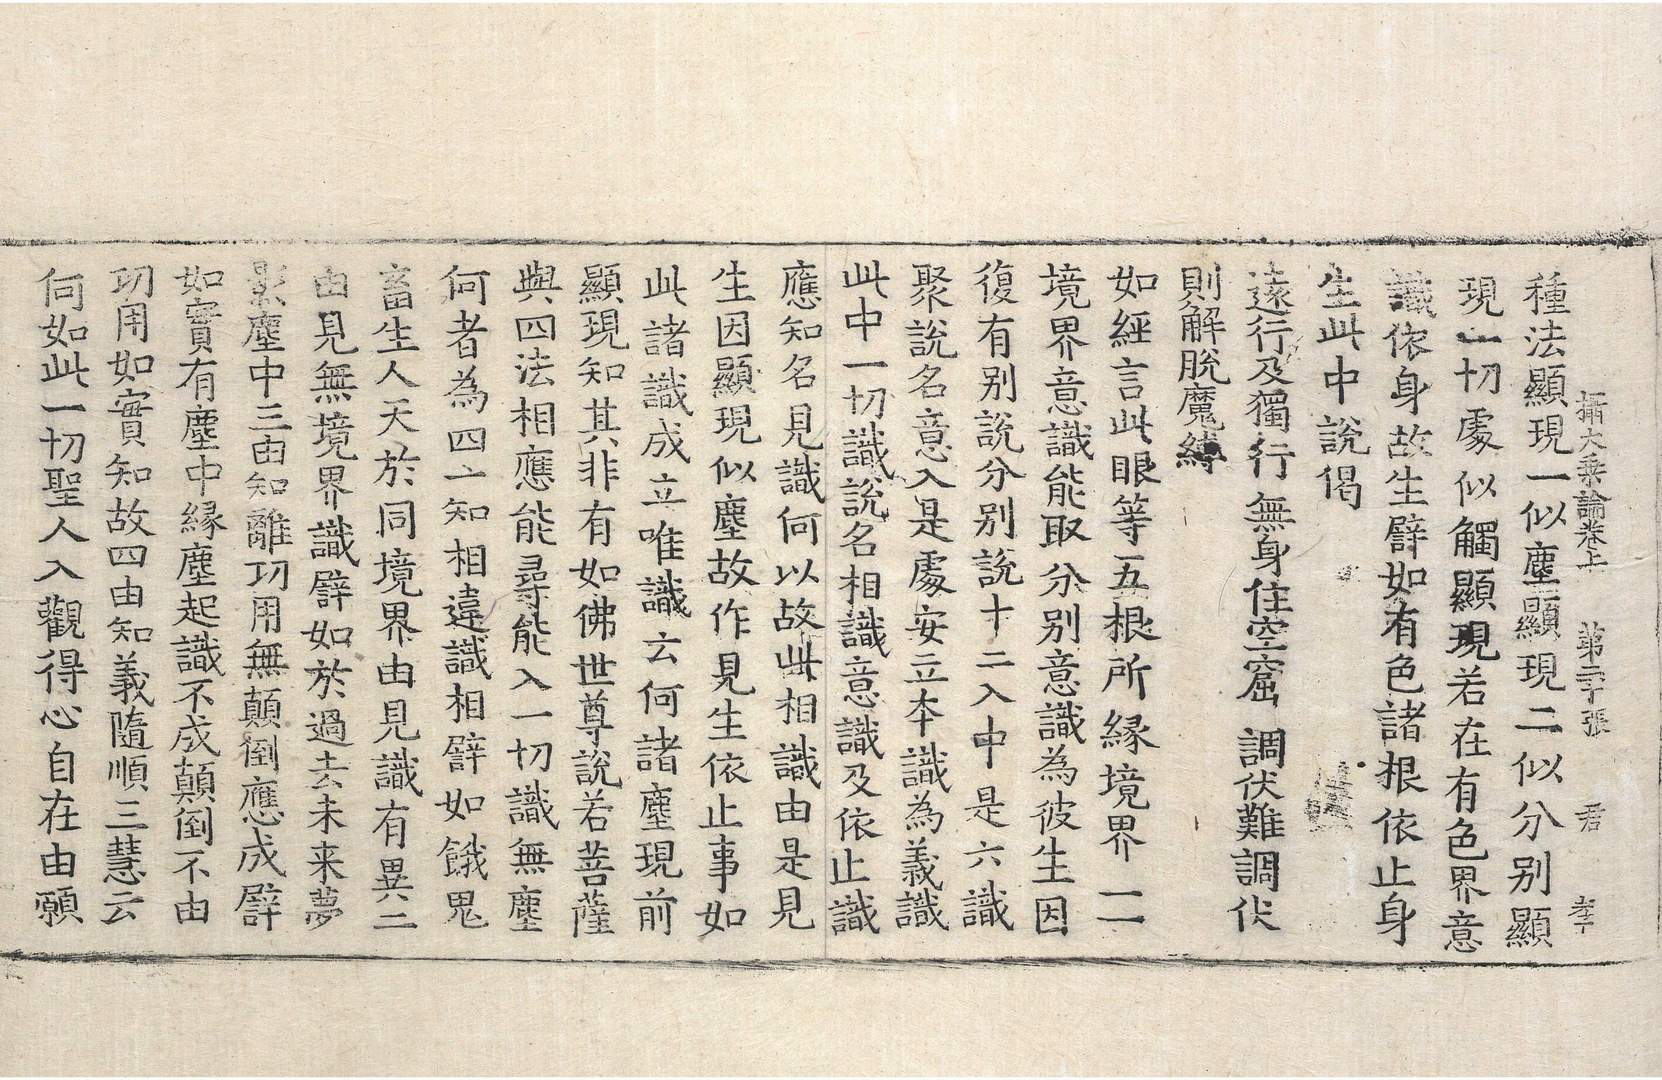 攝大乘論卷上 第二十張 君 李
種法顯現一似塵顯現二似分別顯
現一切處似觸顯現若在有色界意
識依身故生譬如有色諸根依止身
生此中說偈
遠行及獨行 無身住空窟 調伏難調伏
則解脫魔縛
如經言此眼等五根所緣境界一一
境界意識能取分別意識為彼生因
復有別說分別說十二入中是六識
聚說名意入是處安立本識為義識
此中一切識說名相識意識及依止識
應知名見識何以故此相識由是見
生因顯現似塵故作見生依止事如
此諸識成立唯識云何諸塵現前
顯現知其非有如佛世尊說若菩薩
與四法相應能尋能入一切識無塵
何者為四一知相違識相譬如餓鬼
畜生人天於同境界由見識有異二
由見無境界識譬如於過去未来夢
影塵中三由知離功用無顛倒應成譬
如實有塵中緣塵起識不成顛倒不由
功用如實知故四由知義隨順三慧云
何如此一切聖人入觀得心自在由願